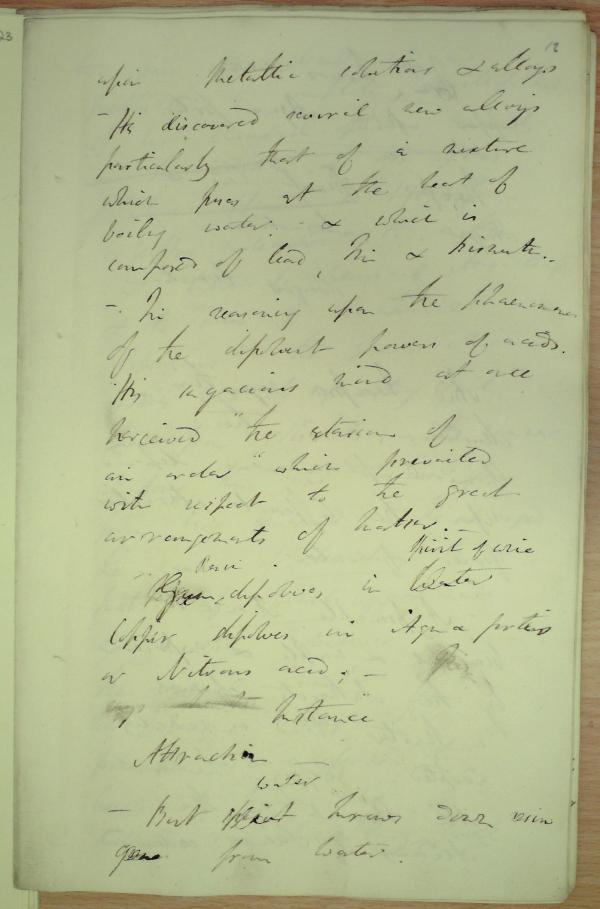 23
12
upon Metallic solutions & alloys
- He discovered several new alloys
particularly that of a mixture
which fuses at the heat of
boiling water. & which is
composed of lead, Tin & Bismuth..
- In reasoning upon the phaenomena
of the dissolvent powers of acids.
His sagacious mind at once
perceived "the
an order" which prevailed
with respect to the great
arrangements of Matter. -
Resin Spirit of wine
Gum, dissolves in Water
Copper dissolves in Aqua fortis
or Nitrous acid; -
says Instance"
Attraction -
water
- But spirit throws down resin
gum from water.